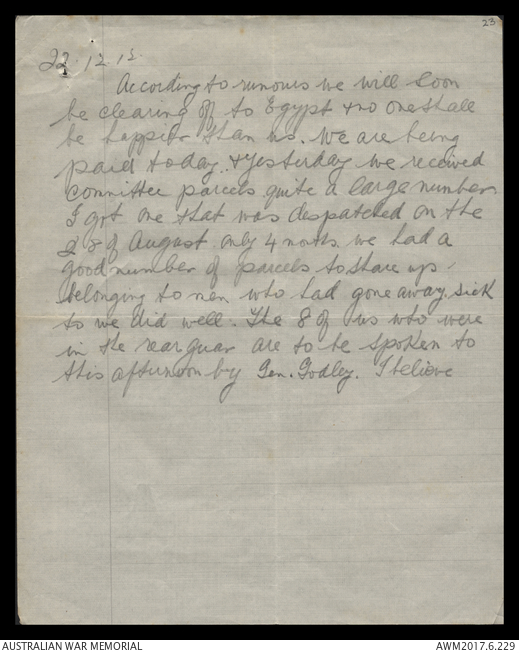 23
22.12.15.
According to rumours we will soon
be clearing off to Egypt & no one shall
be happier than us. We are being
paid today. & yesterday we received
committee parcels quite a large number
I got one that was despatched on the
28 of August only 4 months. we had a
good number of parcels to share up
belonging to men who had gone away sick
so we did well. The 8 of us who were
in the rear guar are to be spoken to
this afternoon by Gen. Godley. I believe
AUSTRALIAN WAR MEMORIAL
AWM2017.6.229